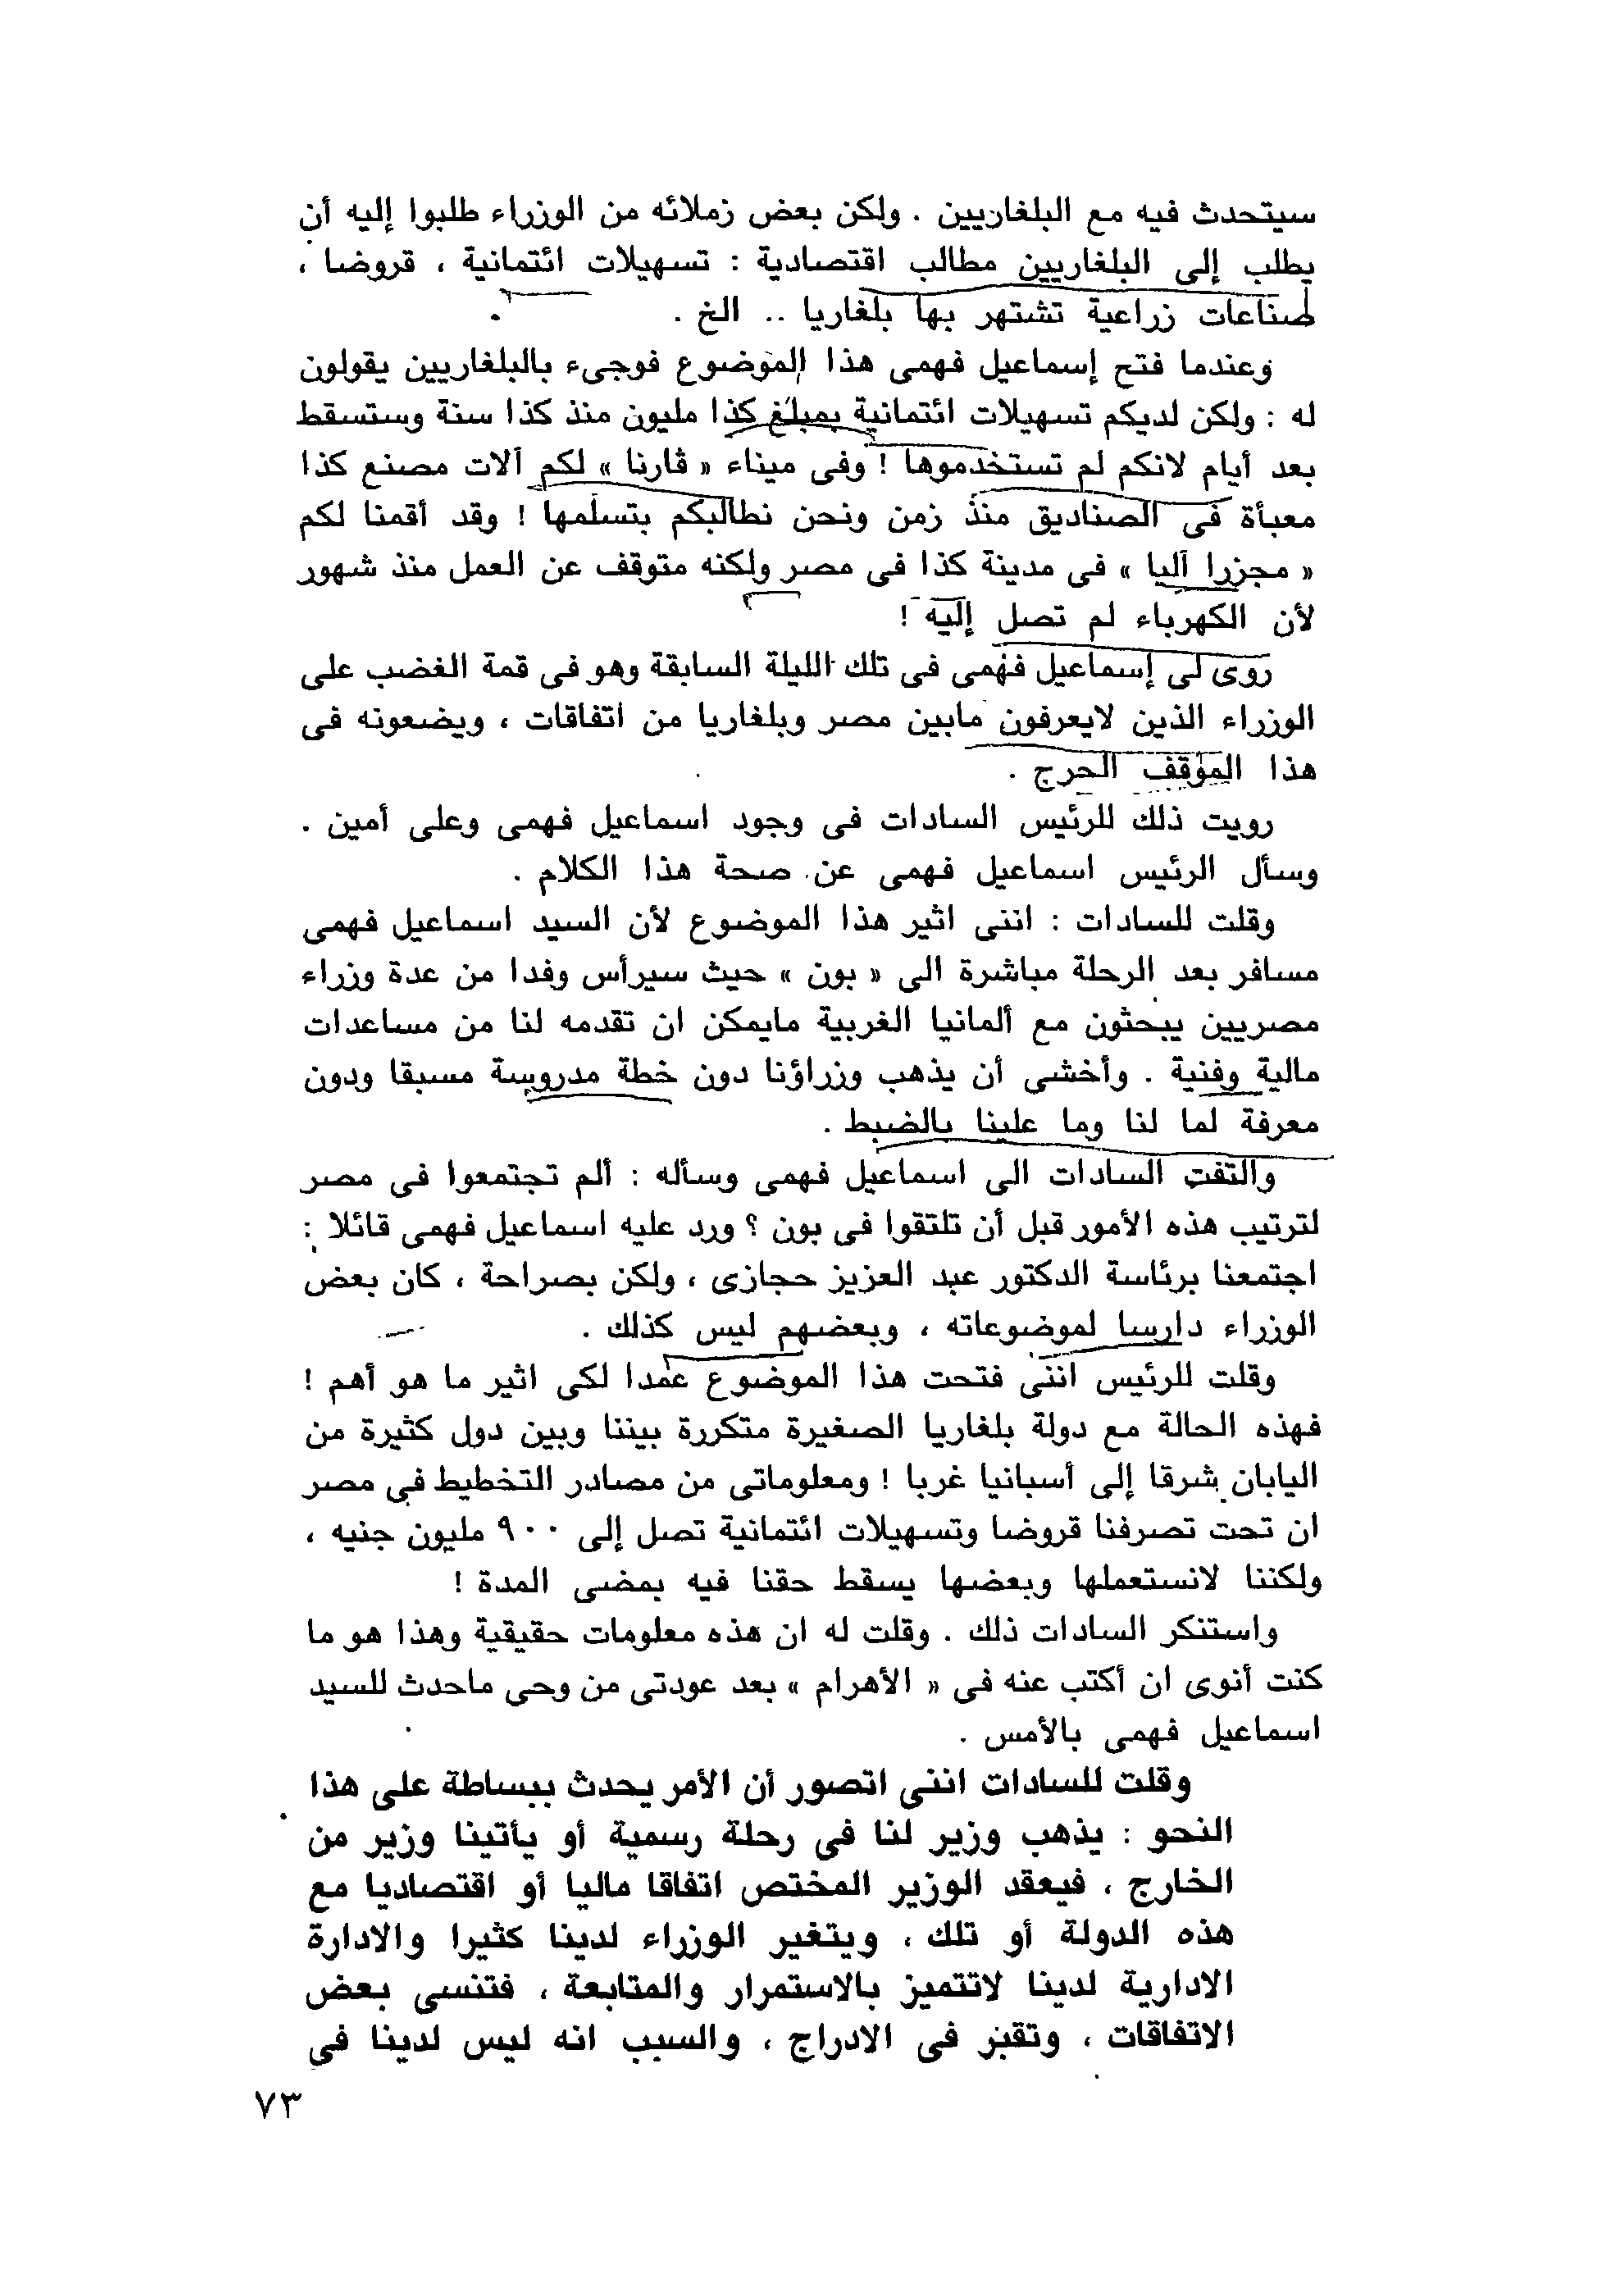 سيتحدث فيه مع البلغاريين . ولكن بعض زملائه من الوزراء طلبوا إليه أن
يطلب إلى البلغاريين مطالب اقتصادية : تسهيلات ائتمانية ، قروضا ،
صناعات زراعية تشتهر بها بلغاريا .. الخ .
وعندما فتح إسماعيل فهمى هذا الموضوع فوجىء بالبلغاريين يقولون
له : ولكن لديكم تسهيلات ائتمانية بمبلغ كذا مليون منذ كذا سنة وستسقط
بعد أيام لانكم لم تستخدموها ! وفى ميناء « ڤارنا » لكم آلات مصنع كذا
معبأة فى الصناديق منذ زمن ونحن نطالبكم بتسلمها ! وقد أقمنا لكم
« مجزرا آليا » فى مدينة كذا فى مصر ولكنه متوقف عن العمل منذ شهور
لأن الكهرباء لم تصل إليه !
روى لى إسماعيل فهمى فى تلك الليلة السابقة وهو فى قمة الغضب على
الوزراء الذين لايعرفون مابين مصر وبلغاريا من اتفاقات ، ويضعونه فى
هذا الموقف الحرج .
رويت ذلك للرئيس السادات فى وجود اسماعيل فهمى وعلى أمين .
وسأل الرئيس اسماعيل فهمى عن صحة هذا الكلام .
وقلت للسادات : اننى اثير هذا الموضوع لأن السيد اسماعيل فهمى
مسافر بعد الرحلة مباشرة الى « بون » حيث سيرأس وفدا من عدة وزراء
مصريين يبحثون مع ألمانيا الغربية مايمكن ان تقدمه لنا من مساعدات
مالية وفنية . وأخشى أن يذهب وزراؤنا دون خطة مدروسة مسبقا ودون
معرفة لما لنا وما علينا بالضبط .
والتفت السادات الى اسماعيل فهمى وسأله : ألم تجتمعوا فى مصر
لترتيب هذه الأمور قبل أن تلتقوا فى بون ؟ ورد عليه اسماعيل فهمى قائلا :
اجتمعنا برئاسة الدكتور عبد العزيز حجازى ، ولكن بصراحة ، كان بعض
الوزراء دارسا لموضوعاته ، وبعضهم ليس كذلك .
وقلت للرئيس اننى فتحت هذا الموضوع عمدا لكى اثير ما هو أهم !
فهذه الحالة مع دولة بلغاريا الصغيرة متكررة بيننا وبين دول كثيرة من
اليابان شرقا إلى أسبانيا غربا ! ومعلوماتى من مصادر التخطيط فى مصر
ان تحت تصرفنا قروضا وتسهيلات ائتمانية تصل إلى ٩٠٠ مليون جنيه ،
ولكننا لانستعملها وبعضها يسقط حقنا فيه بمضى المدة !
واستنكر السادات ذلك . وقلت له ان هذه معلومات حقيقية وهذا هو ما
كنت أنوى ان أكتب عنه فى « الأهرام » بعد عودتى من وحى ماحدث للسيد
اسماعيل فهمى بالأمس .
وقلت للسادات اننى اتصور أن الأمر يحدث ببساطة على هذا
النحو : يذهب وزير لنا فى رحلة رسمية أو يأتينا وزير من
الخارج ، فيعقد الوزير المختص اتفاقا ماليا أو اقتصاديا مع
هذه الدولة أو تلك ، ويتغير الوزراء لدينا كثيرا والادارة
الادارية لدينا لاتتميز بالاستمرار والمتابعة ، فتنسى بعض
الاتفاقات ، وتقبر فى الادراج ، والسبب انه ليس لدينا فى
٧٣